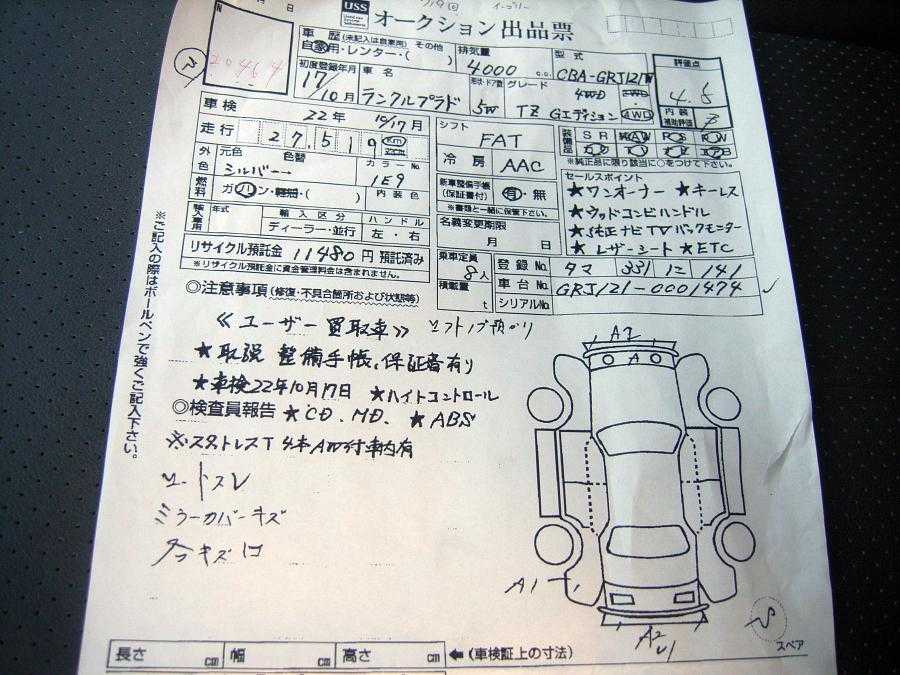 USS オークション 出品票
20464
車歴 (未記入は自家用) その他
自家用・レンター・( )
排気量
4000 c.c.
型式
CBA-GRJ121W
評価点
4.5
初度登録年月
17/10月
車名
ランクルプラド
形状・ドア数
5W
グレード
TZ Gエディション
4WD
内装補助評価
B
車検
22年 10/17月
シフト
FAT
走行
27,519 km
冷房
AAC
装備品
SR 純AW PS PW
※純正品に限り該当に○をつけて下さい。
外色
元色 色替
シルバー
カラーNo.
1E9
新車整備手帳
(保証書付)
有・無
※書類と一緒に保管下さい。
セールスポイント
★ワンオーナー ★キーレス
★ウッドコンビハンドル
★純正ナビTVバックモニター
★レザーシート ★ETC
燃料
ガソリン・軽油・( )
内装色
名義変更期限
月 日
輸入車用
年式
輸入区分
ディーラー・並行
ハンドル
左・右
リサイクル預託金 11480円 預託済み
※リサイクル預託金に資金管理料金は含まれません。
乗車定員
8人
積載量
t
登録No.
タマ 331 に 141
車台No.
GRJ121-0001474
シリアルNo.
◎注意事項 (修復・不具合箇所および状態等)
≪ユーザー買取車≫
★取説 整備手帳、保証書有り
★車検22年10月17日 ★ハイトコントロール
◎検査員報告 ★CD、MD、 ★ABS
※スタットレスT 4本AW付車内有
シートスレ
ミラーカバーキズ
※ご記入の際はボールペンで強くご記入下さい。
A2
A
A1
A2
スペア
長さ cm 幅 cm 高さ cm ←(車検証上の寸法)